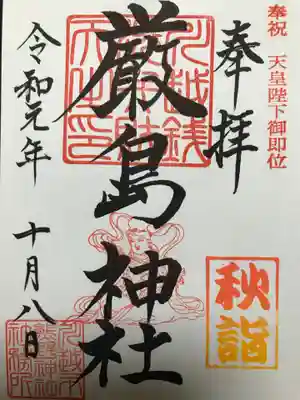 奉祝 天皇陛下御即位
奉拝
厳島神社
秋詣
令和元年
十月八日